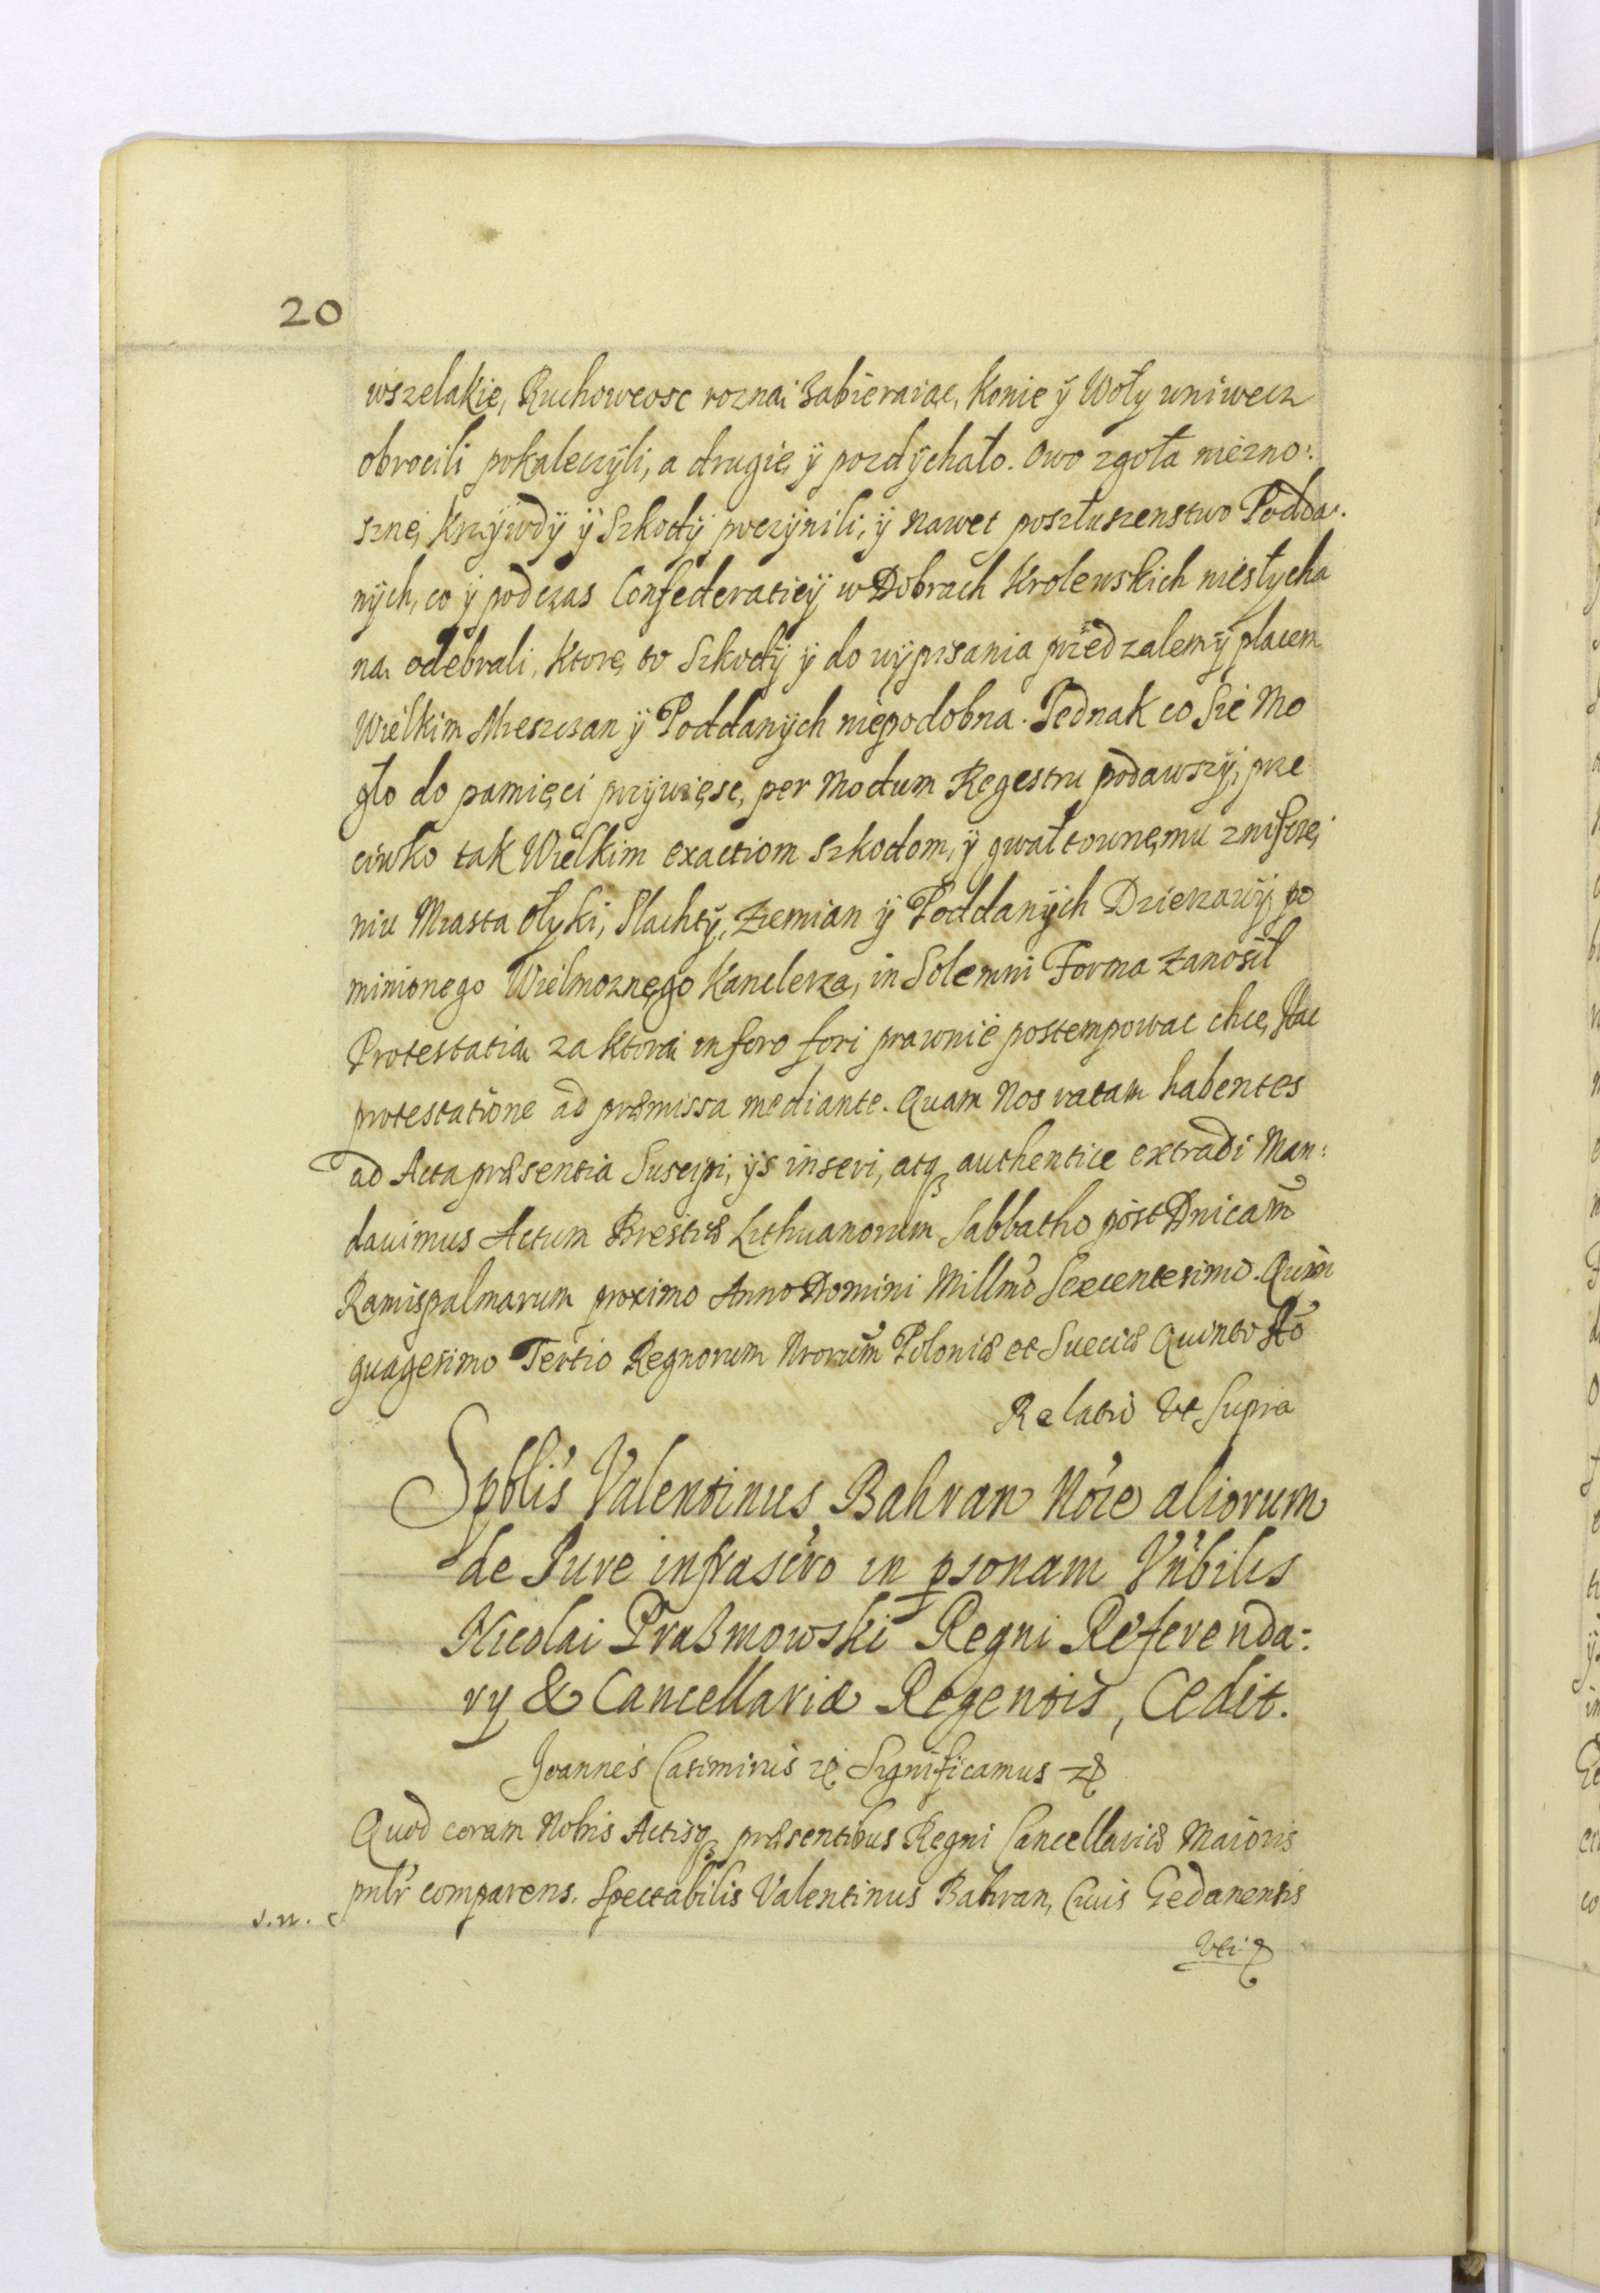 20
wszelakie, Ruchoweosc rozną Zabieraiąc, Konie ÿ Woły uniwecz
obrocili pokaleczÿli, a drugie, ÿ pozdÿchało. Owo zgoła niezno:
sznę, Krzÿwdÿ ÿ Szkodÿ poczÿnili, ÿ nawet poszłuszenstwo Podda-
nÿch, co ÿ podczas Confederatieÿ w Dobrach Krolewskich niesłycha
na, odebrali, Ktorę, to Szkodÿ ÿ do wÿpisania przed zalem ÿ placem
Wielkim Mieszczan ÿ Poddanÿch niepodobna. Jednak co Sie Mo
gło do pamięci przÿwięsc, per Modum Regestru podawszÿ, prze
ciwko tak Wielkim exactiom Szkodom, ÿ gwałtownęmu znisczę,
niu Miasta Ołyki, Slachtÿ, Ziemian ÿ Poddanÿch Dzierzawÿ, po
minionego Wielmoznęgo Kanclerza, in Solemni Forma Zanosił
Protestatią za Ktorą in foro fori prawnie postempowac chce, Hac
protestatione ad præmissa mediante. Quam Nos ratam habentes
ad Acta præsentia Suscipi, ÿs inseri, atq₃ authentice extradi Man:
dauimus Actum Brestiæ Lithuanorum Sabbatho post Dnicam̃
Ramispalmarum proximo Anno Domini Millmo Sexcentesimo. Quin
quagesimo Tertio Regnorum Nrorum̃ Poloniæ et Sueciæ Quinto Aõ
Relatio Vt Supra
Spblis Valentinus Bahran Noie aliorum
de Jure infrascro in psonam Vribilis
Nicolai Praßmowski Regni Referenda:
rÿ & Cancellariæ Regentis, Cedit.
Joannes Casimirus ꝛc̨. Significamus ꝛc̨
Quod coram Nobis Actisq₃ præsentibus Regni Cancellariæ Maioris
pnlr comparens. Spectabilis Valentinus Bahran, Ciuis Gedanensis
s.n.